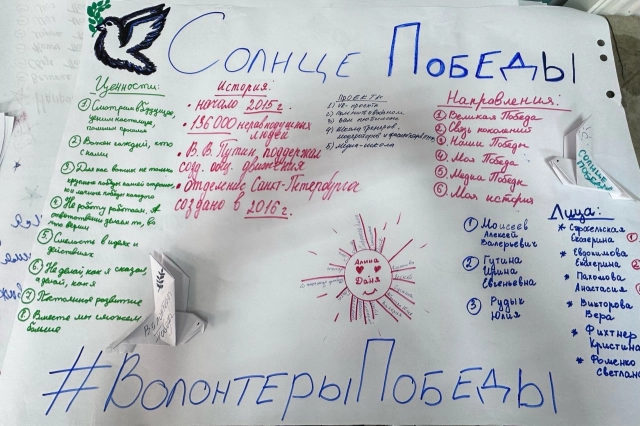 Солнце Победы
Ценности:
① Смотрим в будущее,
ценим настоящее,
помним прошлое
② Важен каждый, кто
с нами
③ Для нас важна не только
④ Не работу работаем, а
ответственно делаем то, во
что верим
⑤ Смелость в идеях и
действиях
⑥ Не делай как я сказал,
а делай, как я
⑦ Постоянное развитие
⑧ Вместе мы сможем
больше
История:
• начало 2015 г.
• 136 000 неравнодушных
людей
• В. В. Путин поддержал
созд. общ. движения
• Отделение Санкт-Петербурга
создано в 2016 г.
Проекты
1) VR-проекты
4) Школа тренеров,
5) Медиа-школа
Направления.
① Великая Победа
② Связь поколений
③ Наши Победы
④ Моя Победа
⑤ Медиа Победы
⑥ Моя история
① Моисеев
Алексей
Валерьевич
② Гутина
Ирина
Евгеньевна
③ Рудык
Юлия
СОЛНЦЕ
ПОБЕДЫ
Лица:
* Стрехельская
Екатерина
* Евдокимова
Екатерина
* Пахомова
Анастасия
* Викторова
Вера
* Фихтнер
Кристина
* Фоменко
Светлана
Алина
Даня
#ВолонтерыПобеды